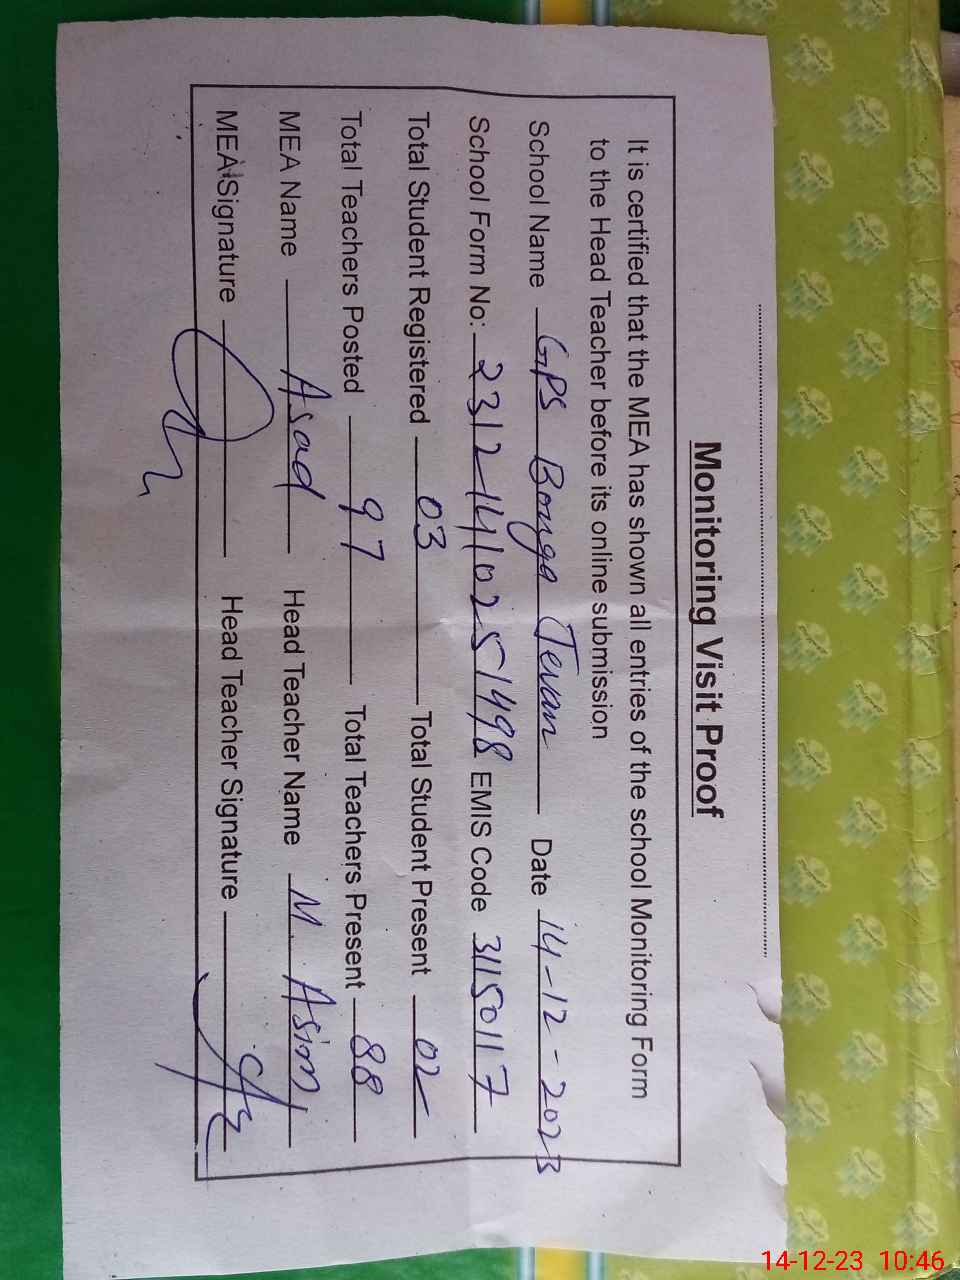 Monitoring Visit Proof
It is certified that the MEA has shown all entries of the school Monitoring Form
to the Head Teacher before its online submission
School Name GPS Bonga Jevan Date 14-12-2023
School Form No: 23121410251498 EMIS Code 31150117
Total Student Registered 03 Total Student Present 02
Total Teachers Posted 97 Total Teachers Present 88
MEA Name Asad Head Teacher Name M. Asim
MEA Signature Head Teacher Signature
14-12-23 10:46